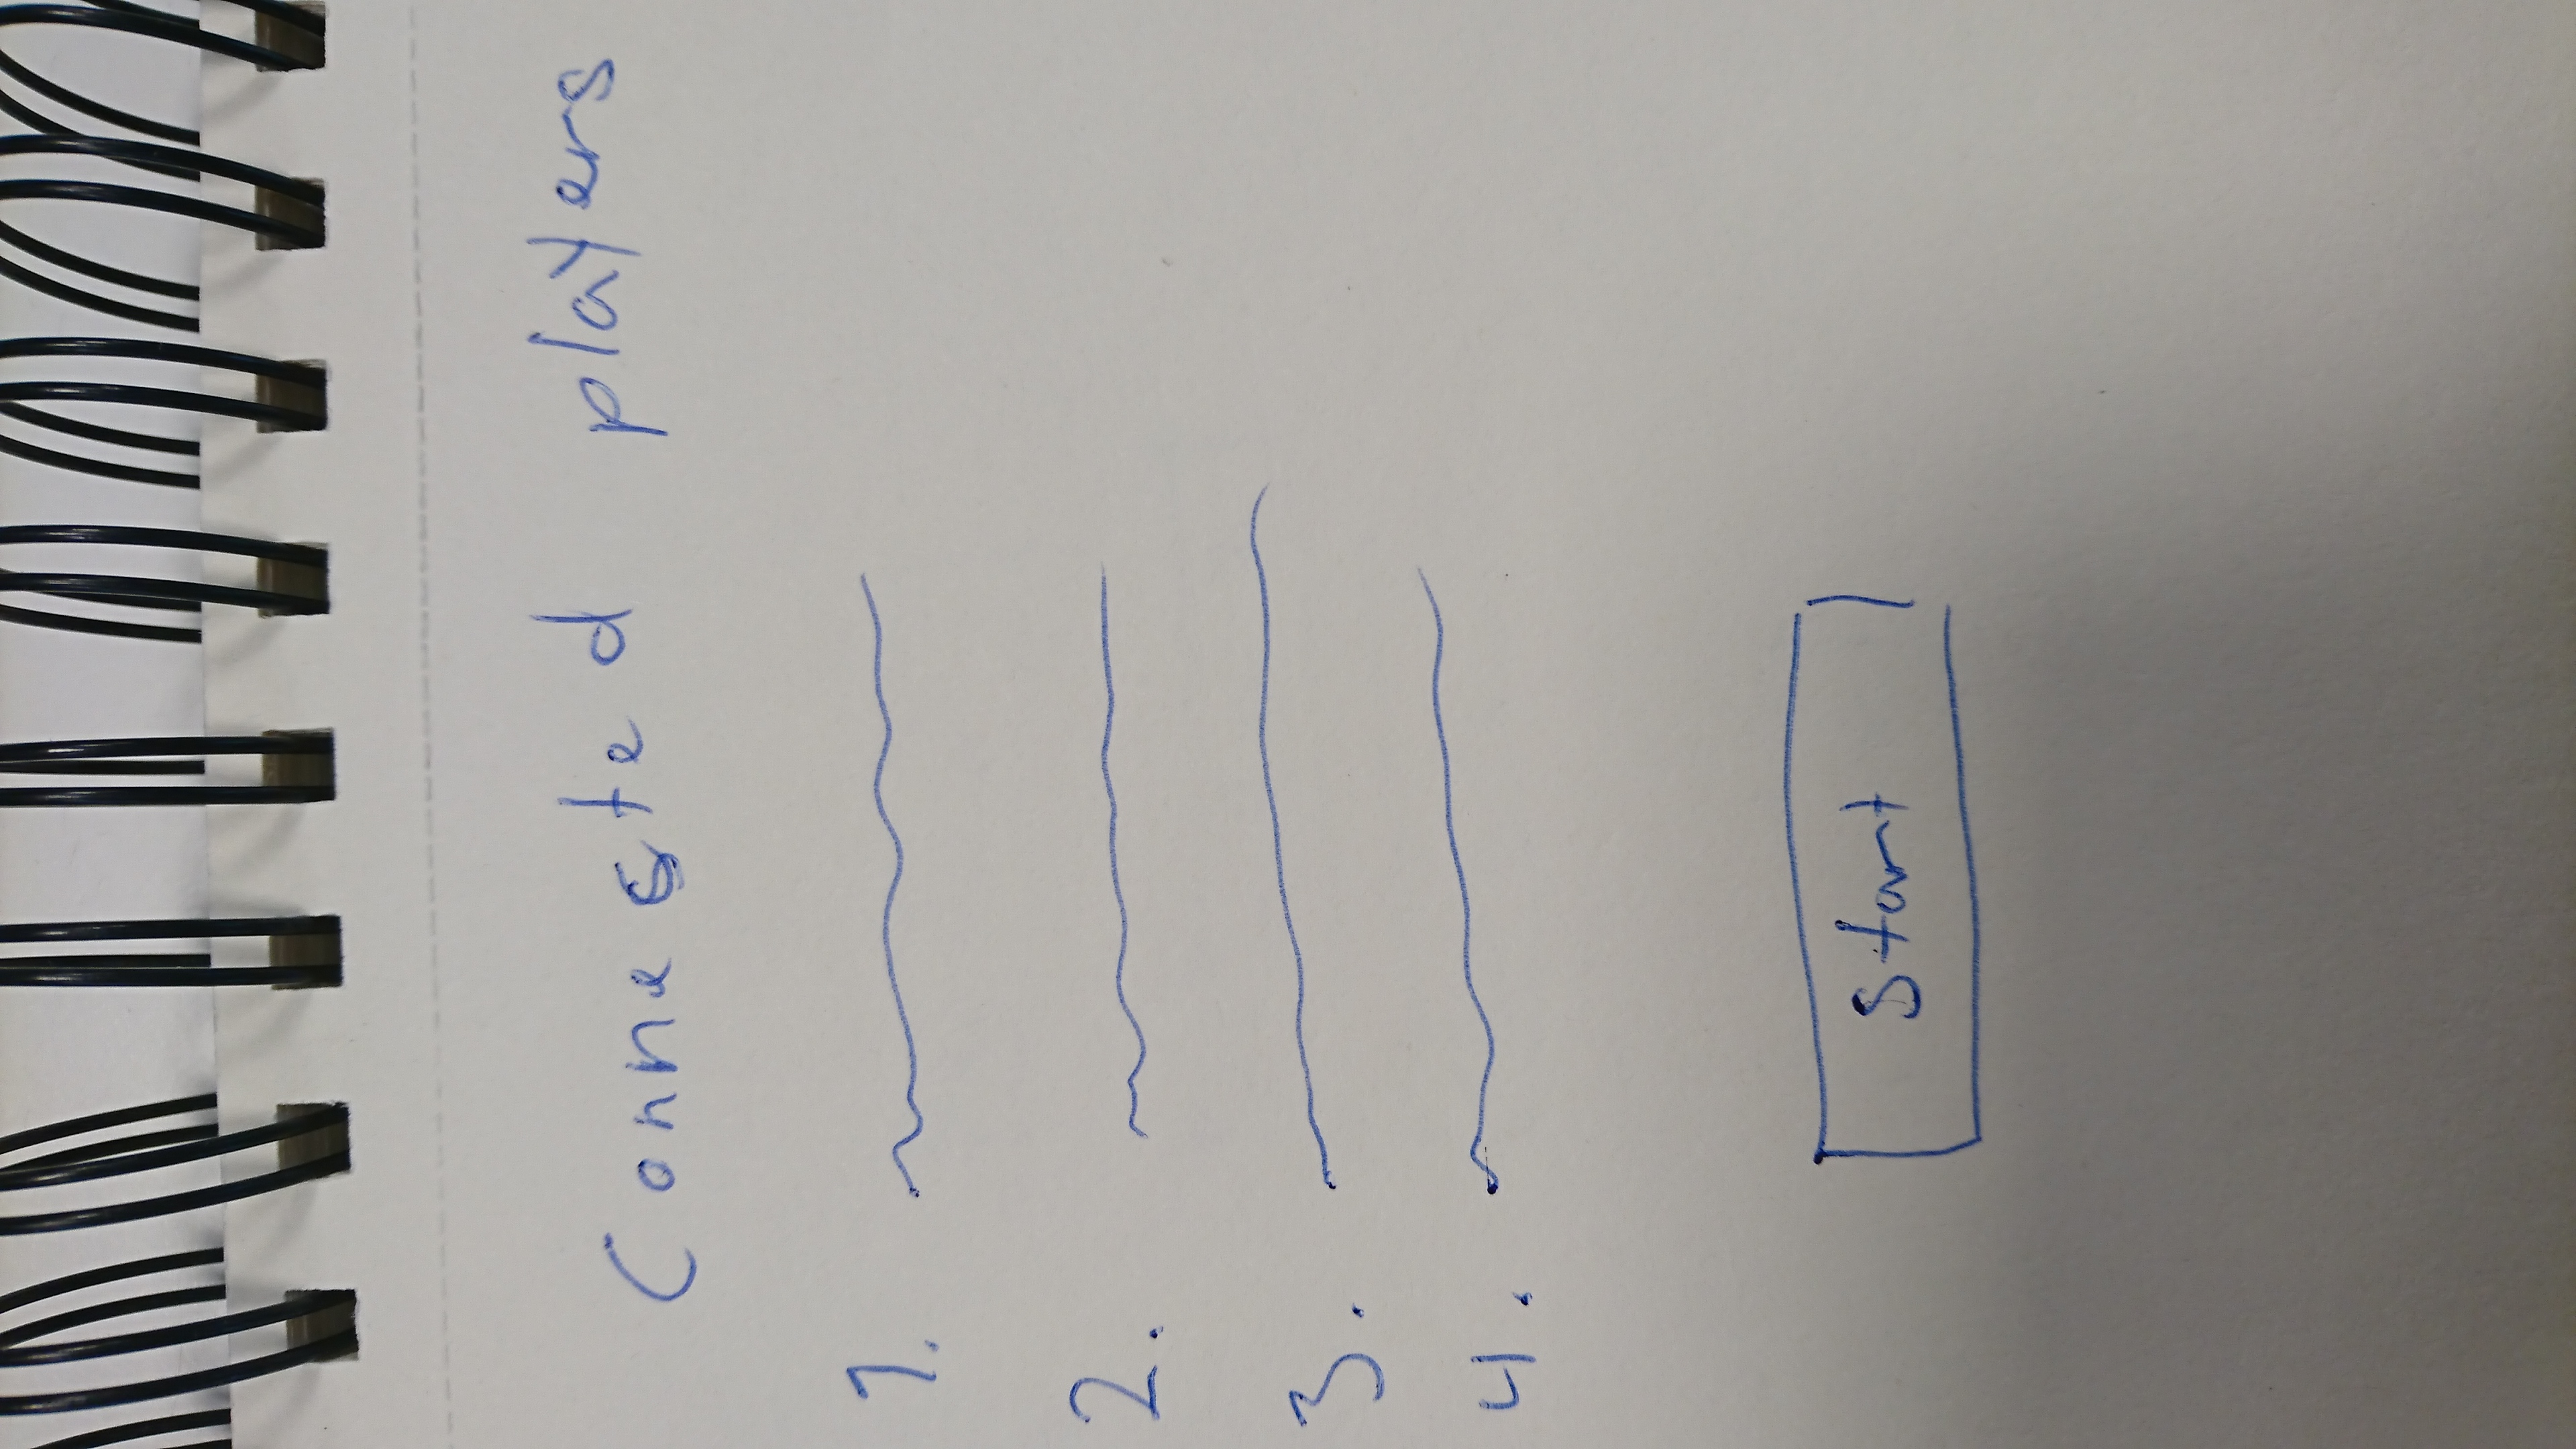 Connected players
1.
2.
3.
4.
Start